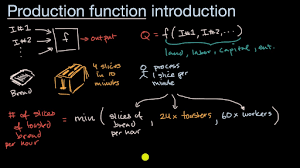 Production function introduction
I#1
I#2
f
output
Q = f(I#1, I#2, ...)
land, labor, capital, ent.
Bread
4 slices
in 10
minutes
process
1 slice per
minute
# of slices
of toasted
bread
per hour
= min (slices of bread per hour, 24 x toasters, 60 x workers)